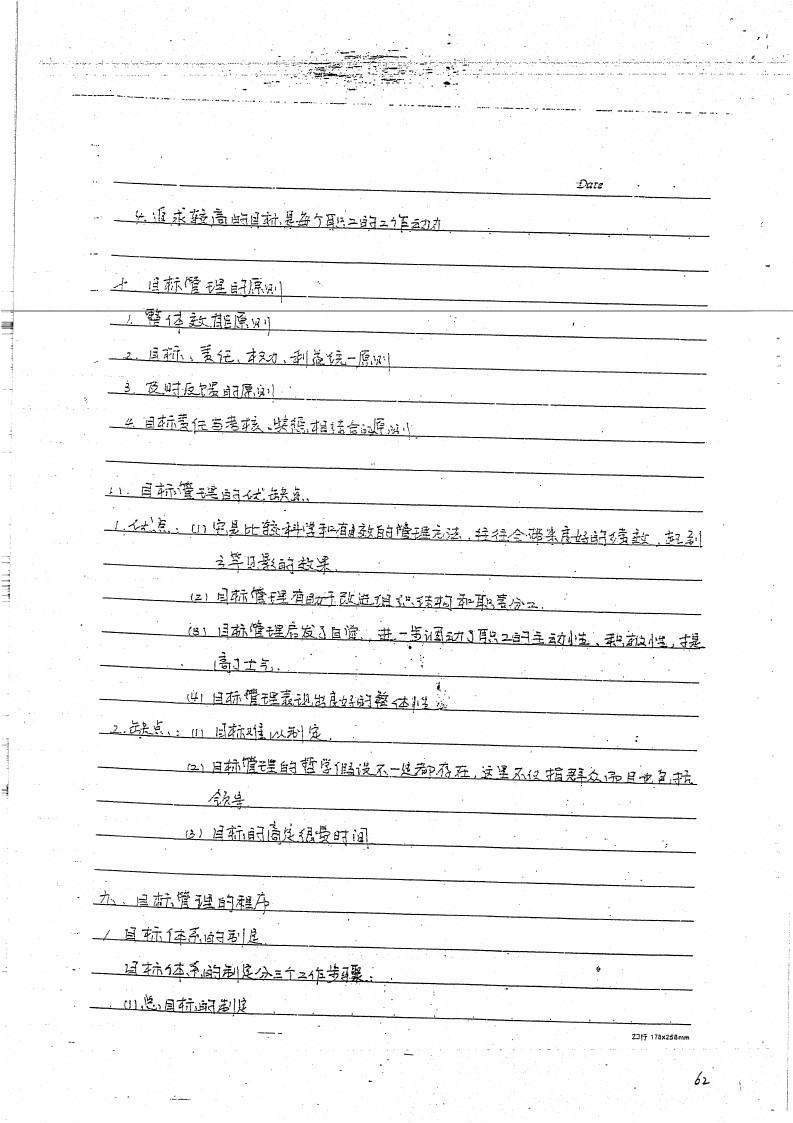 Date
4. 追求较高的目标,是每个职工的工作动力
七 目标管理的原则
1. 整体效能原则
2. 目标、责任、权力、利益统一原则
3. 及时反馈的原则
4. 目标责任与考核、奖惩相结合的原则
八. 目标管理的优缺点、
1. 优点:(1)它是比较科学和有效的管理方法,往往会带来良好的绩效,起到
立竿见影的效果.
(2)目标管理有助于改进组织结构和职责分工.
(3)目标管理启发了自觉,进一步调动了职工的主动性、积极性,提
高了士气.
(4)目标管理表现出良好的整体性
2. 缺点:(1)目标难以制定.
(2)目标管理的哲学假设不一定都存在,这里不仅指群众而且也包括
领导
(3)目标的商定很费时间
九、目标管理的程序
1 目标体系的制定.
目标体系的制定分三个工作步骤:
(1)总目标的制定
23行 178x258mm
62